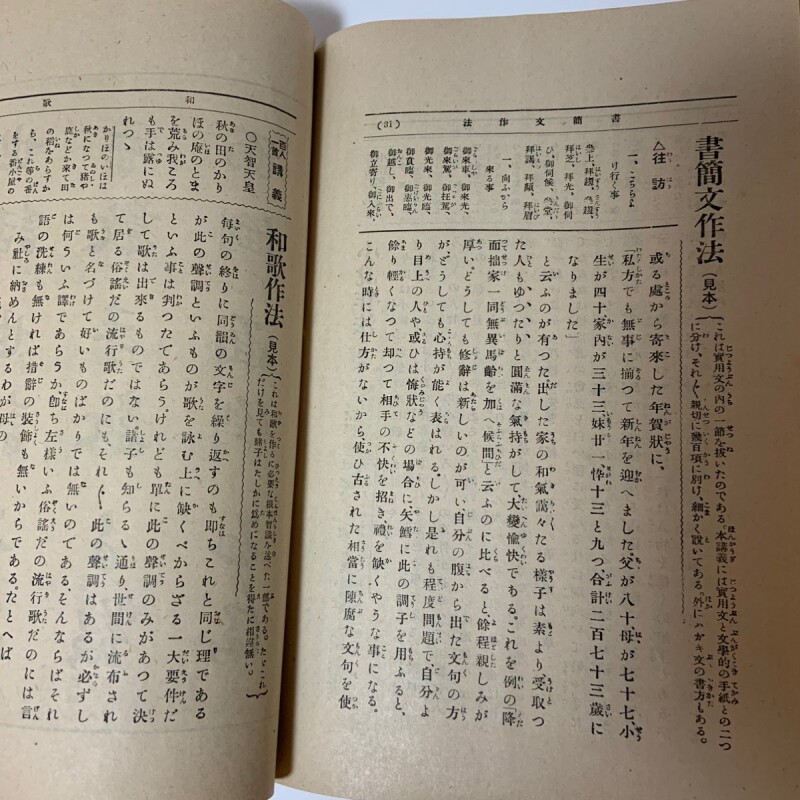 書簡文作法
(31)
書簡文作法（見本）
これは實用文の内の一節を拔いたのである。本講義には實用文と文學的の手紙との二つ
に分け、それ〲親切に幾百項に別け、細かく説いてある。外にハガキ文の書方もある。
△往訪
一、こちらより
行く事
參上、拜趨、參趨、
拜芝、拜光、御伺
ひ、御伺候、參堂、
拜謁、拜顏、拜眉
一、向ふから
來る事
御來車、御來光、
御來駕、御枉駕、
御光來、御光臨、
御賁臨、御恵臨、
御越し、御出で、
御立寄り、御入來、
或る處から寄來した年賀狀に、
「私方でも無事に揃つて新年を迎へました、父が八十母が七十七、小
生が四十、家内が三十三妹廿一悴十三と九つ合計二百七十三歲に
なりました」
と云ふのが有つた出した家の和氣藹々たる樣子は素より受取つ
た人も、ゆつたりと圓滿な氣持がして大變愉快である。これを例の「降
而拙家一同無異馬齡を加へ候間と云ふのに比べると、餘程親しみが
厚い、どうしても修辭は新しいのが可い自分の腹から出た文句の方
が、どうしても心持が能く表はれる。しかし是れも程度問題で自分よ
り目上の人や、或ひは悔狀などの場合に矢鱈に此の調子を用ふると、
餘り輕くなつて却つて相手の不快を招き禮を缺くやうな事になる。
こんな時には仕方がないから、使ひ古された相當に陳腐な文句を使
和歌
百人一首講義
○天智天皇
秋の田のかり
ほの庵のとま
を荒み我ころ
も手は露にぬ
れつゝ
かりほのいほは
秋になつて猪や
鹿などが來て田
の稻をあらすか
ら、これの番
をする番小屋の
和歌作法（見本）
これは和歌を作るに必要な根本智識を述べた一部である。たゞこれ
だけを見ても諸子はたしかに爲めになることを得たに相違無い。
每句の終りに同韻の文字を繰り返すのも即ちこれと同じ理である
が此の聲調といふものが歌を詠む上に缺くべからざる一大要件だ
といふ事は判つたであらうけれども單に此の聲調のみがあつて決
して歌は出來るものではない諸子も知らるゝ通り、世間に流布され
て居る俗謠だの流行歌だのにも、それ〲此の聲調はあるが必ずし
も歌と名づけて好いものばかりでは無いのである、そんならばそれ
は何ういふ譯であらうか、卽ち左樣いふ俗謠だの流行歌だのには言
語の洗練も無ければ措辭の裝飾も無いからであるたとへば
み社に納めんとするわが母の